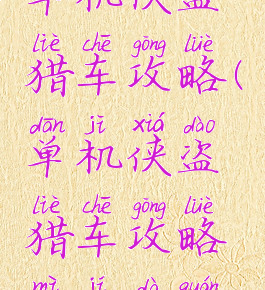 单机侠盗
liè chē gōng lüè
猎车攻略(
dān jī xiá dào
单机侠盗
liè chē gōng lüè
猎车攻略
mì jí dà quán